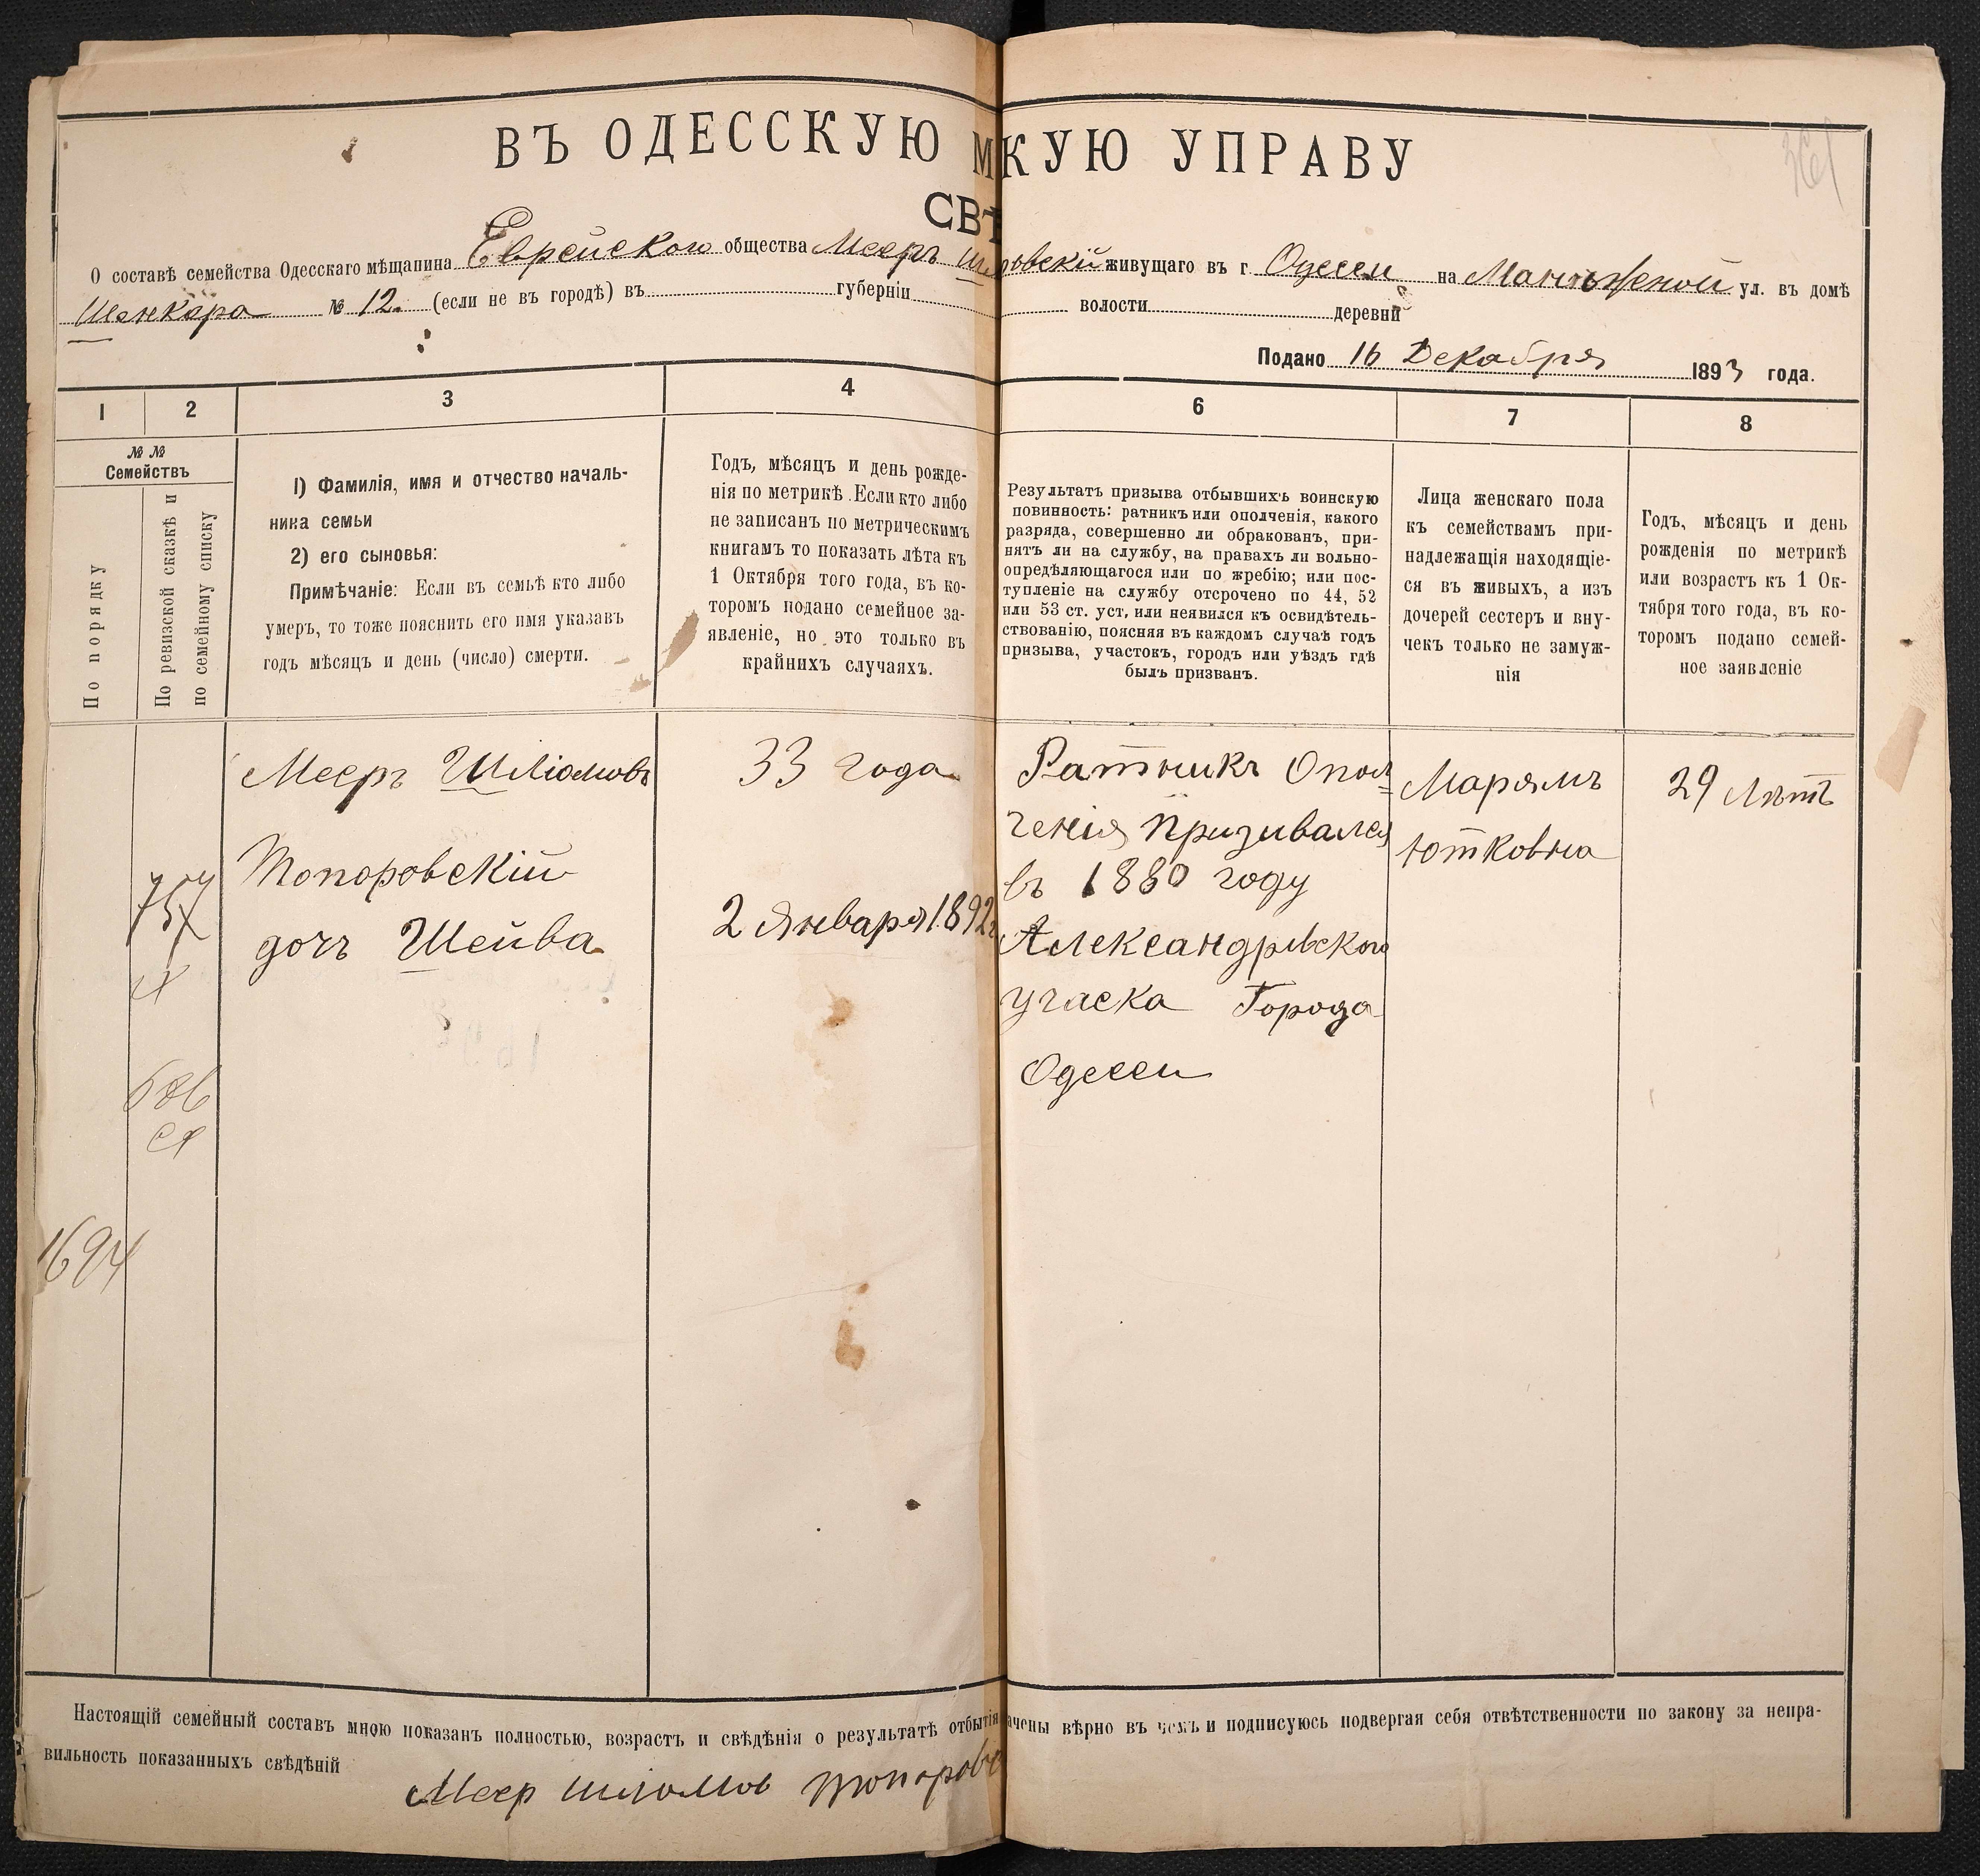 ВЪ ОДЕССКУЮ М КУЮ УПРАВУ
СВѢ
О составѣ семейства Одесскаго мѣщанина Еврейского общества Мееръ Ш овскій живущаго въ г Одессы на Мантежной ул. въ домѣ
Шенкера № 12. (если не въ городѣ) въ губерніи волости деревни
Подано 16 Декабря 1893 года.
1 2 3 4 6 7 8
№ №
Семействъ
По порядку
По ревизской сказкѣ и
по семейному списку
1) Фамилія, имя и отчество началь-
ника семьи
2) его сыновья:
Примѣчаніе: Если въ семьѣ кто либо
умеръ, то тоже пояснить его имя указавъ
годъ мѣсяцъ и день (число) смерти.
Годъ, мѣсяцъ и день рожде-
нія по метрикѣ. Если кто либо
не записанъ по метрическимъ
книгамъ то показать лѣта къ
1 Октября того года, въ ко-
торомъ подано семейное за-
явленіе, но это только въ
крайнихъ случаяхъ.
Результатъ призыва отбывшихъ воинскую
повинность: ратникъ или ополченія, какого
разряда, совершенно ли обракованъ, при-
нятъ ли на службу, на правахъ ли вольно-
опредѣляющагося или по жребію; или пос-
тупленіе на службу отсрочено по 44, 52
или 53 ст. уст, или неявился къ освидѣтель-
ствованію, поясняя въ каждомъ случаѣ годъ
призыва, участокъ, городъ или уѣздъ гдѣ
былъ призванъ.
Лица женскаго пола
къ семействамъ при-
надлежащія находящіе-
ся въ живыхъ, а изъ
дочерей сестеръ и вну-
чекъ только не замуж-
нія
Годъ, мѣсяцъ и день
рожденія по метрикѣ
или возрастъ къ 1 Ок-
тября того года, въ ко-
торомъ подано семей-
ное заявленіе
Мееръ Шліомовъ
Топоровскій
дочъ Шейва
33 года
2 Января 1892 г
Ратникъ Опол
ченія призивался
въ 1880 году
Александровского
учаска Города
Одессы
Марямъ
Ютковна
29 Лѣтъ
1694
Настоящій семейный составъ мною показанъ полностью, возрастъ и свѣдѣнія о результатѣ отбытія ачены вѣрно въ чемъ и подписуюсь подвергая себя отвѣтственности по закону за непра-
вильность показанныхъ свѣдѣній
Меер Шліомов Топоровс